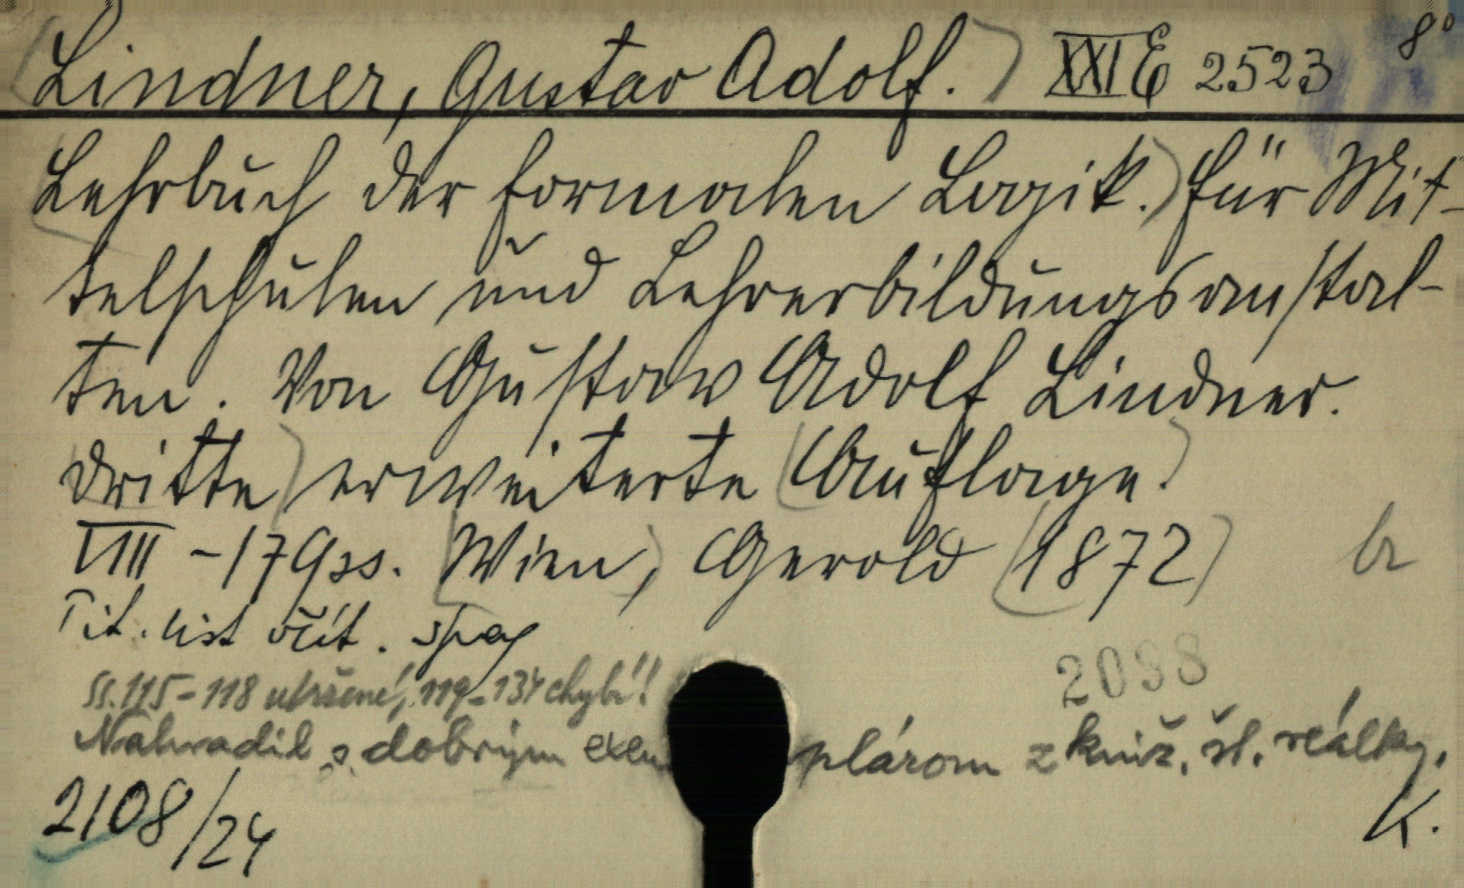 Lindner, Gustav Adolf. XXI E 2523 8°
Lehrbuch der formalen Logik. für Mit-
telschulen und Lehrerbildungsanstal-
ten. Von Gustav Adolf Lindner.
Dritte erweiterte Auflage.
VIII - 179 ss. Wien, Gerold 1872
Tit. list
2098
ss. 115-118 utržené, 119-134 chybí!!
Nahradil s dobrým exemplárom z kniž. št. reálky.
2108/24 K.